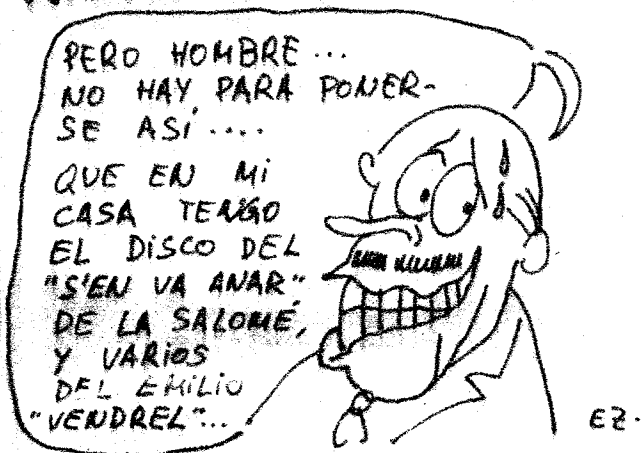 PERO HOMBRE ...
NO HAY PARA PONER-
SE ASÍ ....
QUE EN Mi
CASA TENGO
EL DiSCO DEL
"S'EN VA ANAR"
DE LA SALOMÉ,
Y VARiOS
DEL EMiLiO
"VENDREL"...
EZ.